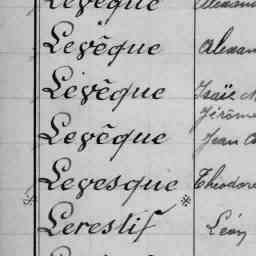 Levêque
Levêque Alexan
Levêque Isaïe
Jérôme
Levêque Jean
Levesque Théodore
Lerestif Léon